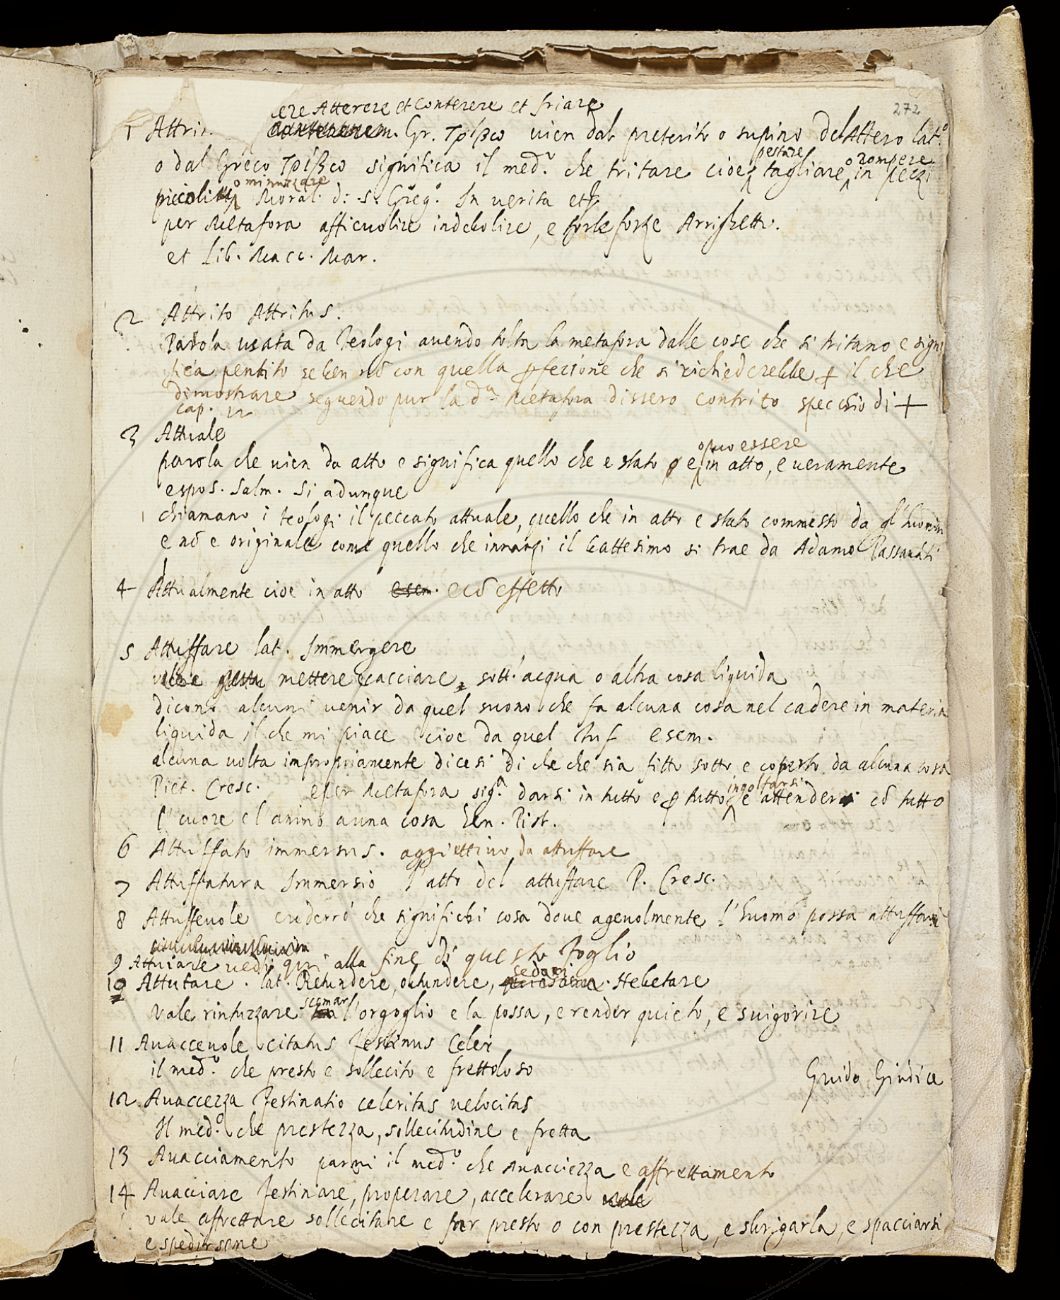 272
ere Atterere et Conterere et friare
1 Attri. Gr. Τρίβω vien dal preterito o supino del Attero lat.º
o dal Greco Τρίβω significa il med.º che tritare cioè pestare tagliare o rompere in pezzi
piccoli o minuzzare Moral. di S. Greg.º In verita
per Metafora affievolire indebolire, e forse Arrighetti.
et Lib. Macc. Mar.
2 Attrito Attritus.
Parola usata da Teologi avendo tolta la metafora dalle cose che si tritano e signi
fica pentito se ben nō con quella ꝑfezione che si richiederebbe + il che
dimostrare seguendo pur la d.ª Metafora dissero contrito specchio di +
cap. 12
3 Attuale
parola che vien da atto e significa quello che e stato o e, o puo essere in atto, e veramente
espos. Salm. Si adunque
chiamano i teologi il peccato attuale, quello che in atto e stato commesso da gl'huomini
e nō e originale come quello che innanzi il battesimo si trae da Adamo Passavanti
4 Attualmente cioe in atto esem. e cō effetto
5 Attuffare lat. Immergere
vale mettere cacciare sott'acqua o altra cosa liquida
dicono alcuni venir da quel suono che fa alcuna cosa nel cadere in materia
liquida il che mi piace cioe da quel tuf esem.
alcuna volta impropriamente dicesi di che che sia fitto sotto e coperto da alcuna cosa
Piet. Cresc. e per Metafora sig.ª darsi in tutto e ꝑ tutto ingolfarsi e attendere cō tutto
l'cuore e l'animo a una cosa Sen. Pist.
6 Attuffato immersus. aggiettivo da attuffare
7 Attuffatura Immersio l'atto del attuffare P. Cresc.
8 Attuffevole crederrò che significhi cosa dove agevolmente l'huomo possa attuffarsi
9 Attuiare vedi qui alla fine di questo foglio
10 Attutare. lat. Retundere, obtundere, sedare. Hebetare
Vale rintuzzare scemar l'orgoglio e la possa, e render quieto, e svigorire
11 Avaccevole citatus festinus Celer
il med.º che presto e sollecito e frettoloso Guido Giudice
12 Avaccezza festinatio celeritas velocitas
Il med.º che prestezza, sollecitudine e fretta
13 Avacciamento parmi il med.º che avaccezza e affrettamento
14 Avacciare festinare, properare, accelerare vale
vale affrettare sollecitare e far presto o con prestezza, e sbrigarla, e spacciarsi
e spedirsene